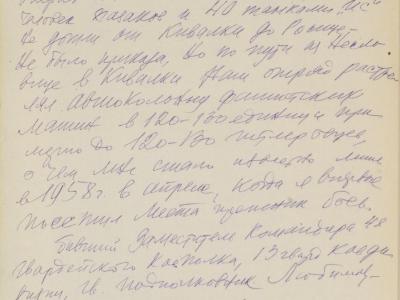 человек казаков и 40 танками. И с
не дошли от Кивалки до Росице-
не было приказа, Но по пути из
вице в Кивалки Наш отряд расстре
лял Автоколонну фашистских
машин в 120-130 единиц и при
мерно до 120-130 гитлеровцев,
о чем мне стало известно лишь
в 1958 г. в апреле, когда я впервые
посетил места прошлых боёв.
Бывший Заместитель Командира 48
гвардейского Кавполка, 13 гвард кавди
визии, гв. подполковник Любимов